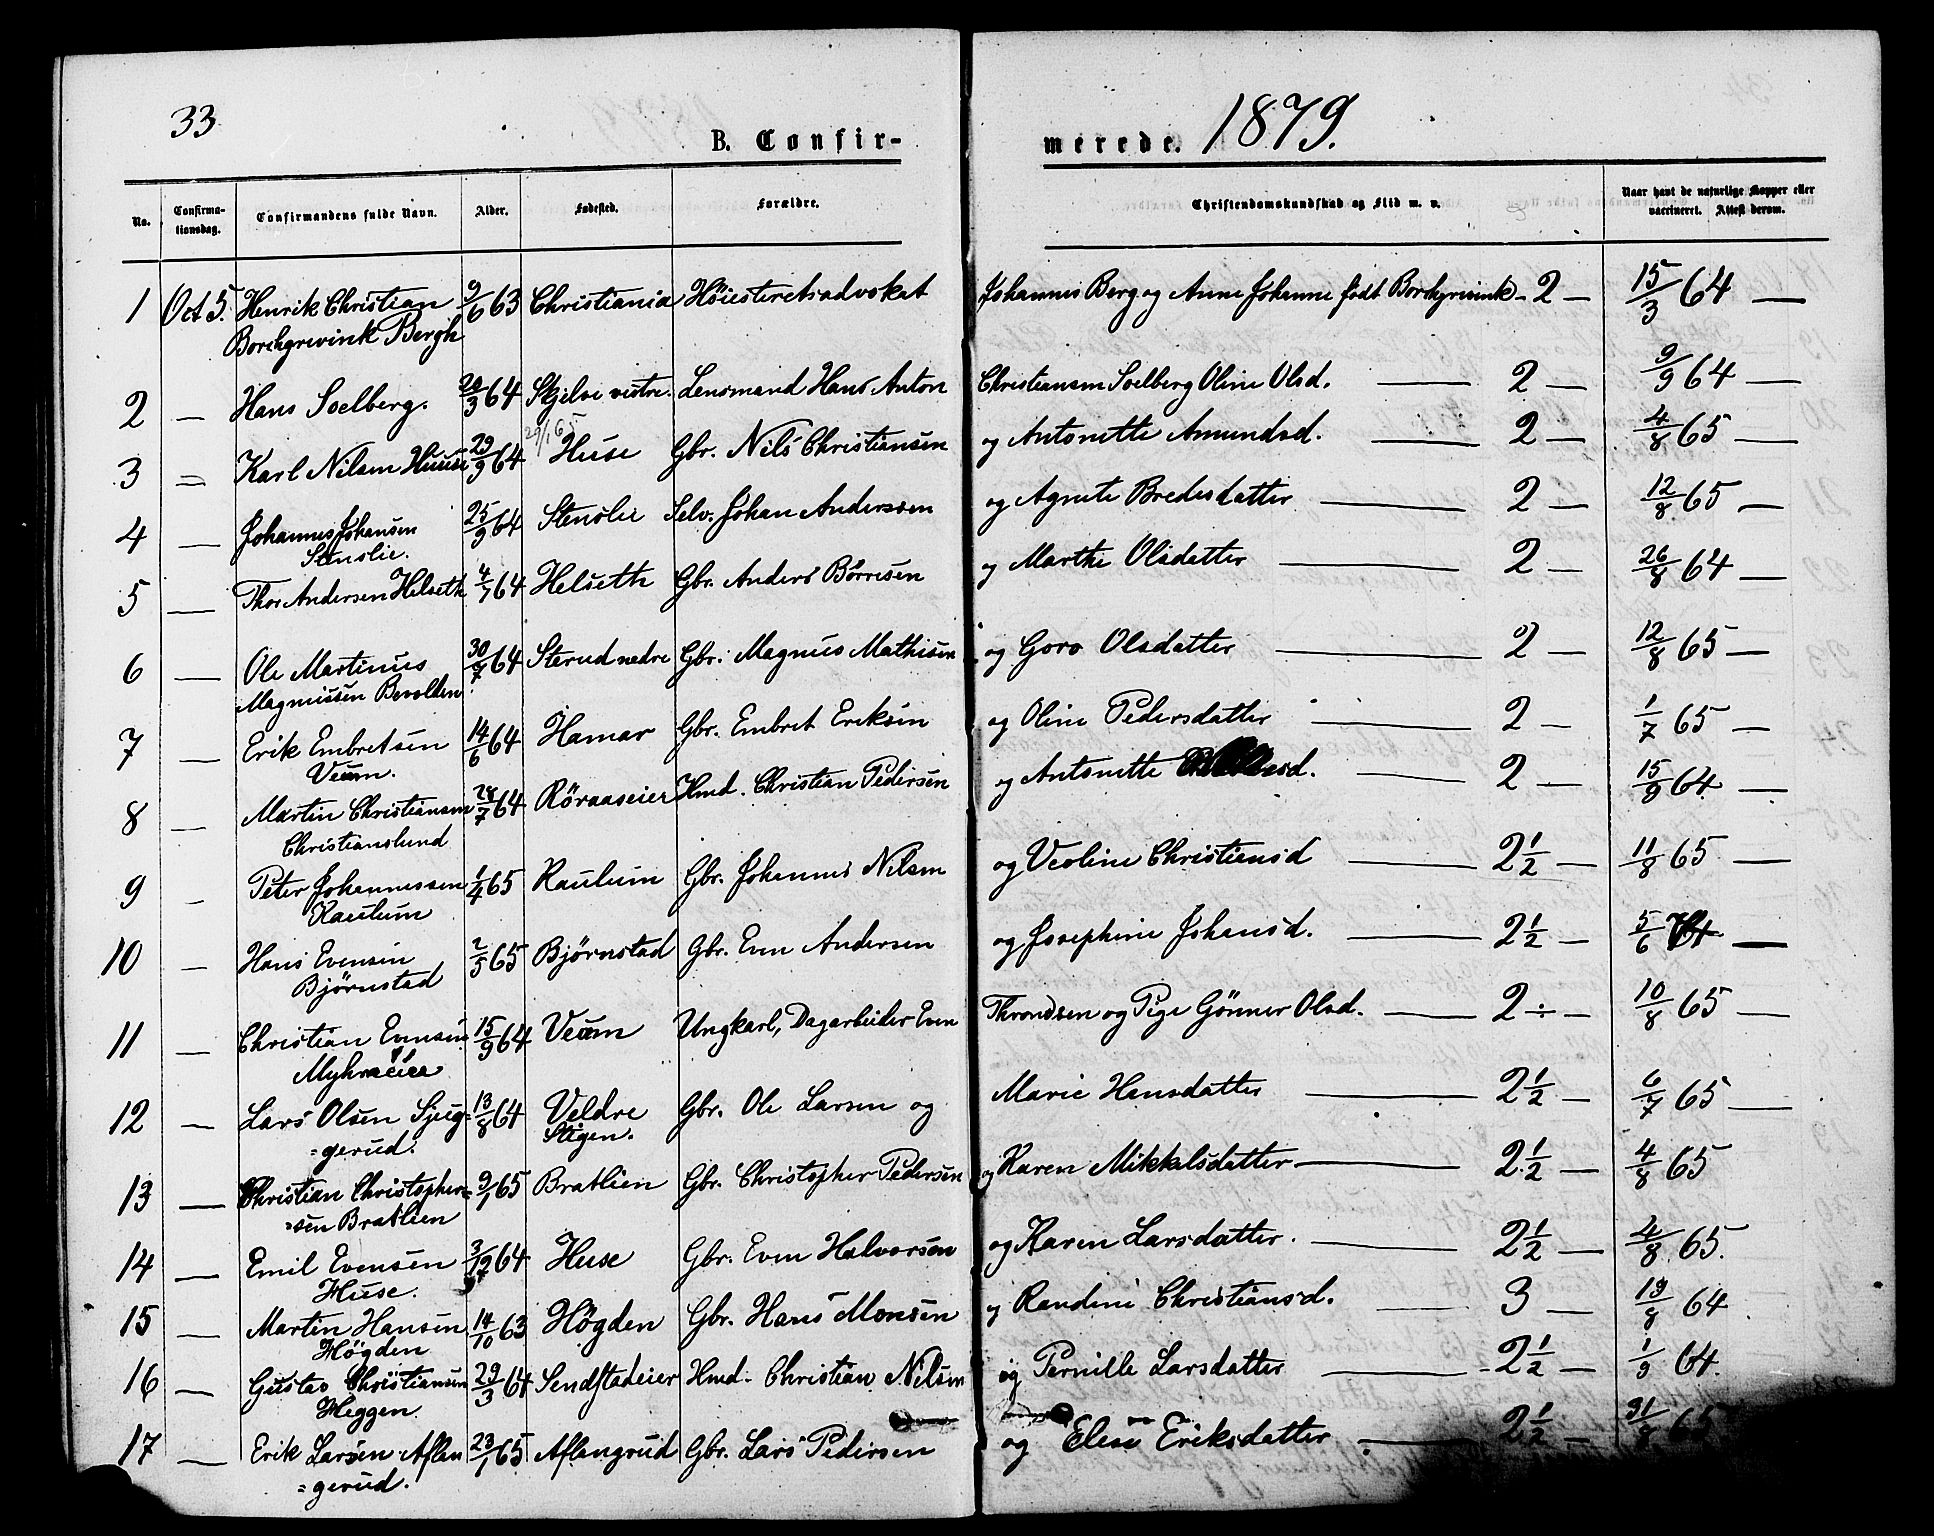 33
B. Confir-
merede. 1879.
No. Confirma-tionsdag. Confirmandens fulde Navn. Alder. Fødested. Forældre. Christendomskundskab og Flid m. v. Naar havt de naturlige Kopper eller vaccineret. Attest derom.
1 Oct 5. Henrik Christian 9/6 63 Christiania Höiesteretsadvokat Johannes Berg og Anne Johanne födt Borchgrevink - 2 — 15/3 64 —
Borchgrevink Bergh
2 — Hans Soelberg. 20/3 64 Skjelve vestre. Lensmand Hans Anton Christiansen Soelberg Oline Olsd. — 2 — 9/9 64 —
29/1 65
3 = Karl Nilsen Huuse 29/9 64 Huse Gbr. Nils Christiansen og Antonette Amundsd. — 2 — 4/8 65 —
4 — Johannes Johansen 25/9 64 Stenslie Selv. Johan Anderssen og Agnete Bredesdatter — 2 — 12/8 65 —
Stenslie.
5 — Thor Andersen Helseth 4/7 64 Helseth Gbr. Anders Börresen og Marthe Olsdatter — 2 — 26/8 64 —
6 — Ole Martinus 30/7 64 Sterud nedre Gbr. Magnus Mathisen og Goro Olsdatter — 2 — 12/8 65 —
Magnussen Bevolden
7 — Erik Embretsen 14/6 64 Hamar Gbr. Embret Eriksen og Oline Pedersdatter — 2 — 1/7 65 —
Veum.
8 — Martin Christiansen 28/7 64 Röraaseier Hmd. Christian Pedersen og Antonette — 2 — 15/9 64 —
Christianslund
9 — Peter Johannessen 1/4 65 Kaulum Gbr. Johannes Nilsen og Veoline Christiansd — 2 1/2 — 11/8 65 —
Kaulum
10 — Hans Evensen 2/5 65 Björnstad Gbr. Even Andersen og Josephine Johansd. — 2 1/2 — 5/6 —
Björnstad
11 — Christian Evensen 15/9 64 Veum Ungkarl, Dagarbeider Even Throndsen og Pige Gönner Olsd. — 2 ÷ — 10/8 65 —
Myhreeie
12 — Lars Olsen Sjug- 13/8 64 Veldre Gbr. Ole Larsen og Marie Hansdatter — 2 1/2 — 6/7 65 —
=gerud. Stigen.
13 — Christian Christopher- 9/1 65 Bratlien Gbr. Christopher Pedersen og Karen Mikkelsdatter — 2 1/2 — 4/8 65
=sen Bratlien
14 — Emil Evensen 3/12 64 Huse Gbr. Even Halvorsen og Karen Larsdatter. — 2 1/2 — 4/8 65.
Huse.
15 — Martin Hansen 14/10 63 Högden Gbr. Hans Monsen og Randine Christiansd. — 3 — 19/8 64
Högden
16 — Gustav Christiansen 29/3 64 Sendstadeier Hmd. Christian Nilsen og Pernille Larsdatter - 2 1/2 — 1/9 64.
Heggen.
17 — Erik Larsen Aflan 23/1 65 Aflangrud Gbr. Lars Pedersen og Elese Eriksdatter — 2 1/2 — 31/8 65
=gerud.